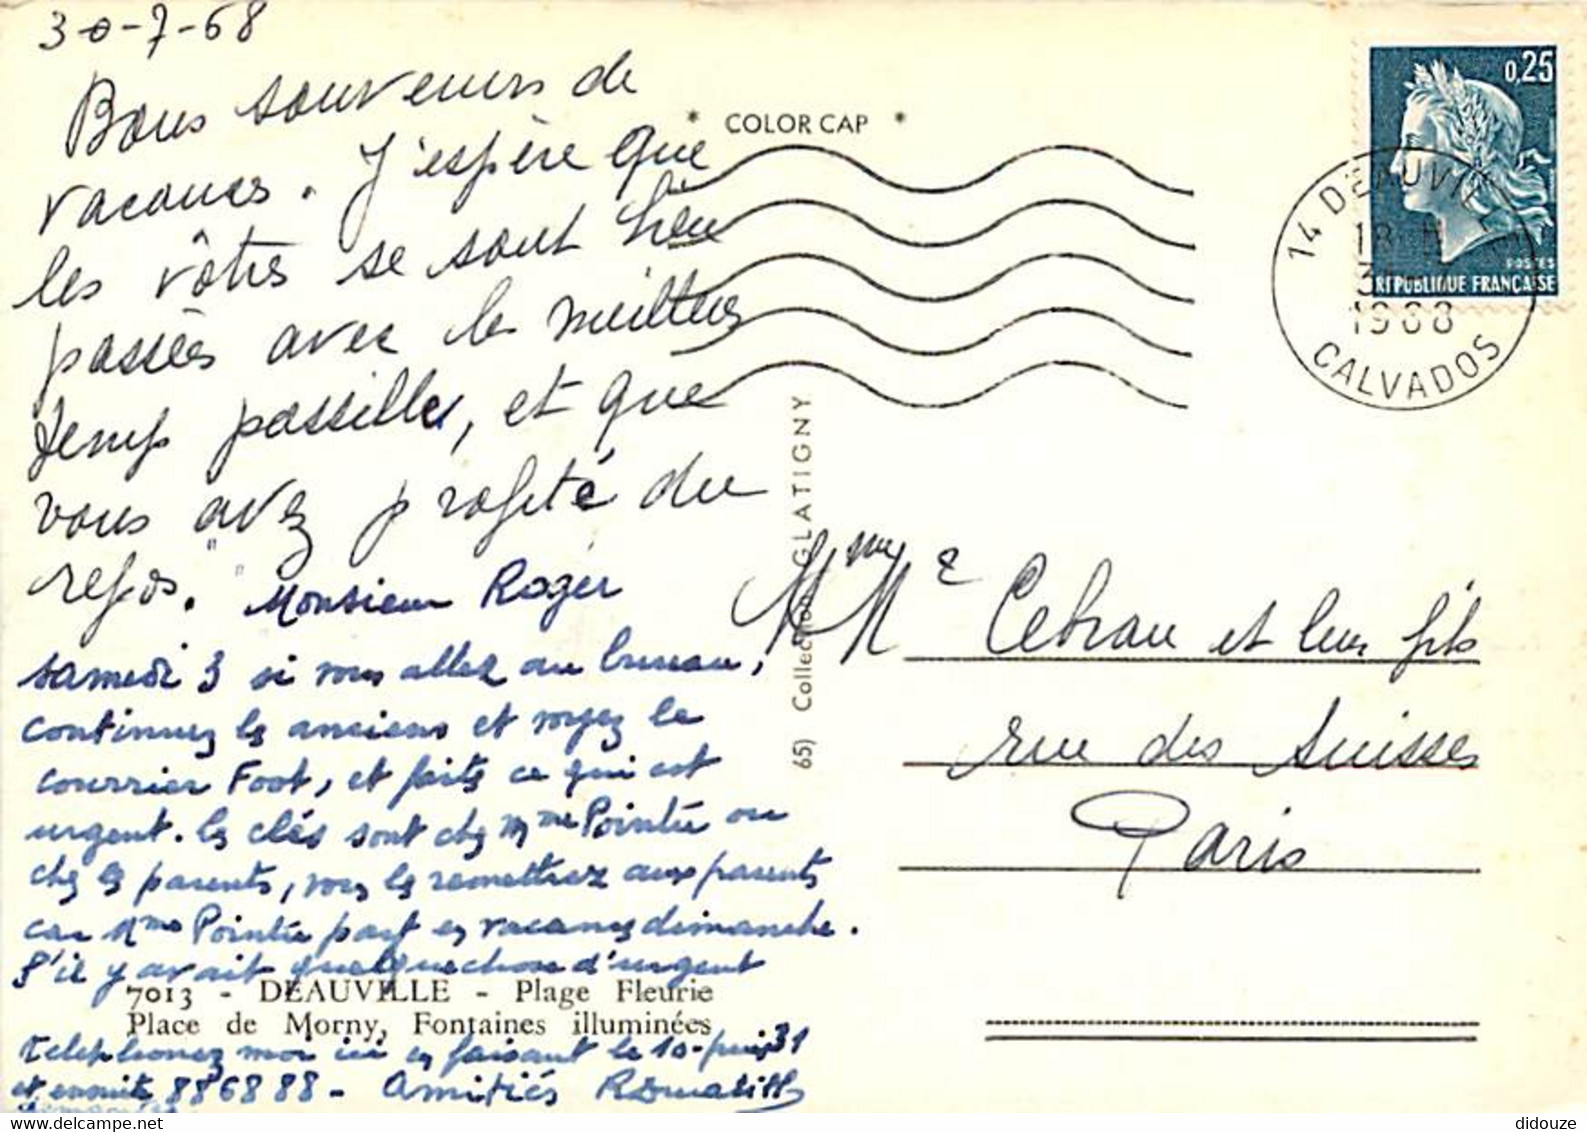 30-7-68
Bons souvenirs de
vacances. J'espère que
les vôtres se sont bien
passées avec le meilleur
temps possible, et que
vous avez profité du
repos. "Monsieur Roger
samedi 3 si vous allez au bureau,
continuez les anciens et voyez le
courrier Foot, et faites ce qui est
urgent. les clés sont chez Mme Pointée ou
chez les parents, vous les remettrez aux parents
car Mme Pointée part en vacances dimanche.
S'il y avait quelque chose d'urgent
7013 - DEAUVILLE - Plage Fleurie
Place de Morny, Fontaines illuminées
telephonez moi ici en faisant le 10-puis 31
et ensuite 886888 - Amitiés
* COLOR CAP *
65) Collection GLATIGNY
0,25
POSTES
REPUBLIQUE FRANÇAISE
14 DEAUVILLE
18 H
1968
CALVADOS
Mme M Cebrau et leur fils
rue des Suisses
Paris
didouze